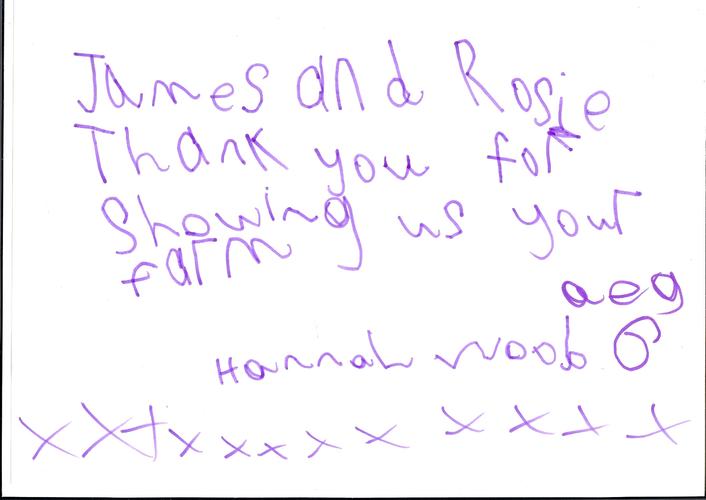 James and Rosie
Thank you for
showing us your
farm
aeg
Hannah Woob 6
xxxxxxxxxxxx